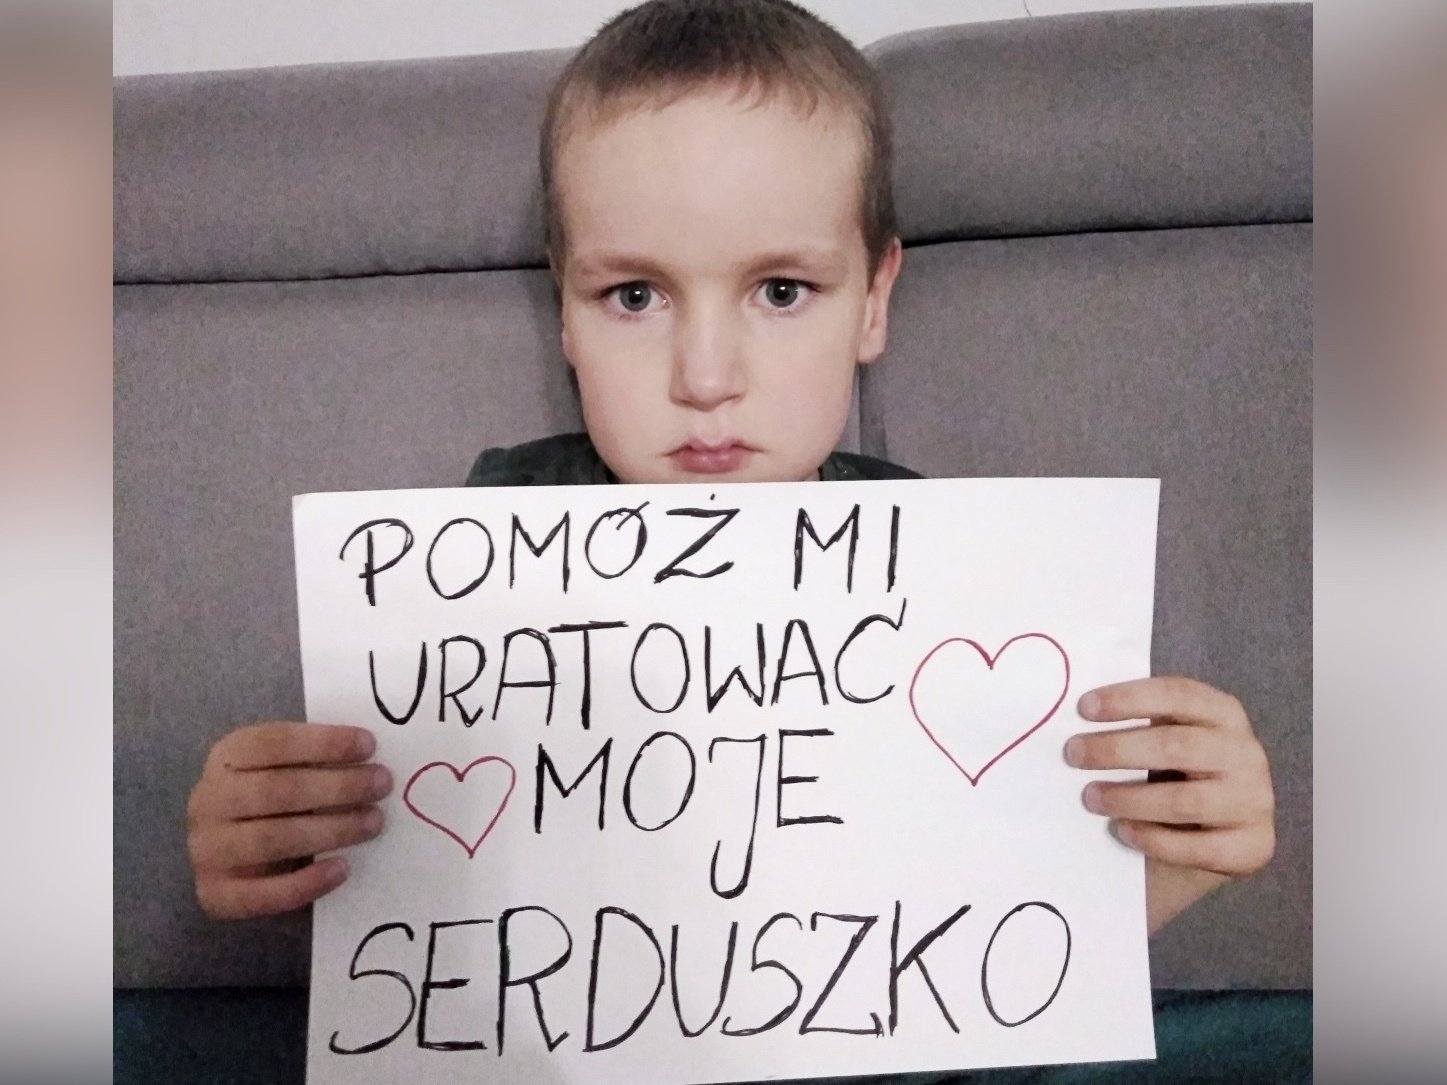 POMÓŻ MI
URATOWAĆ
MOJE
SERDUSZKO